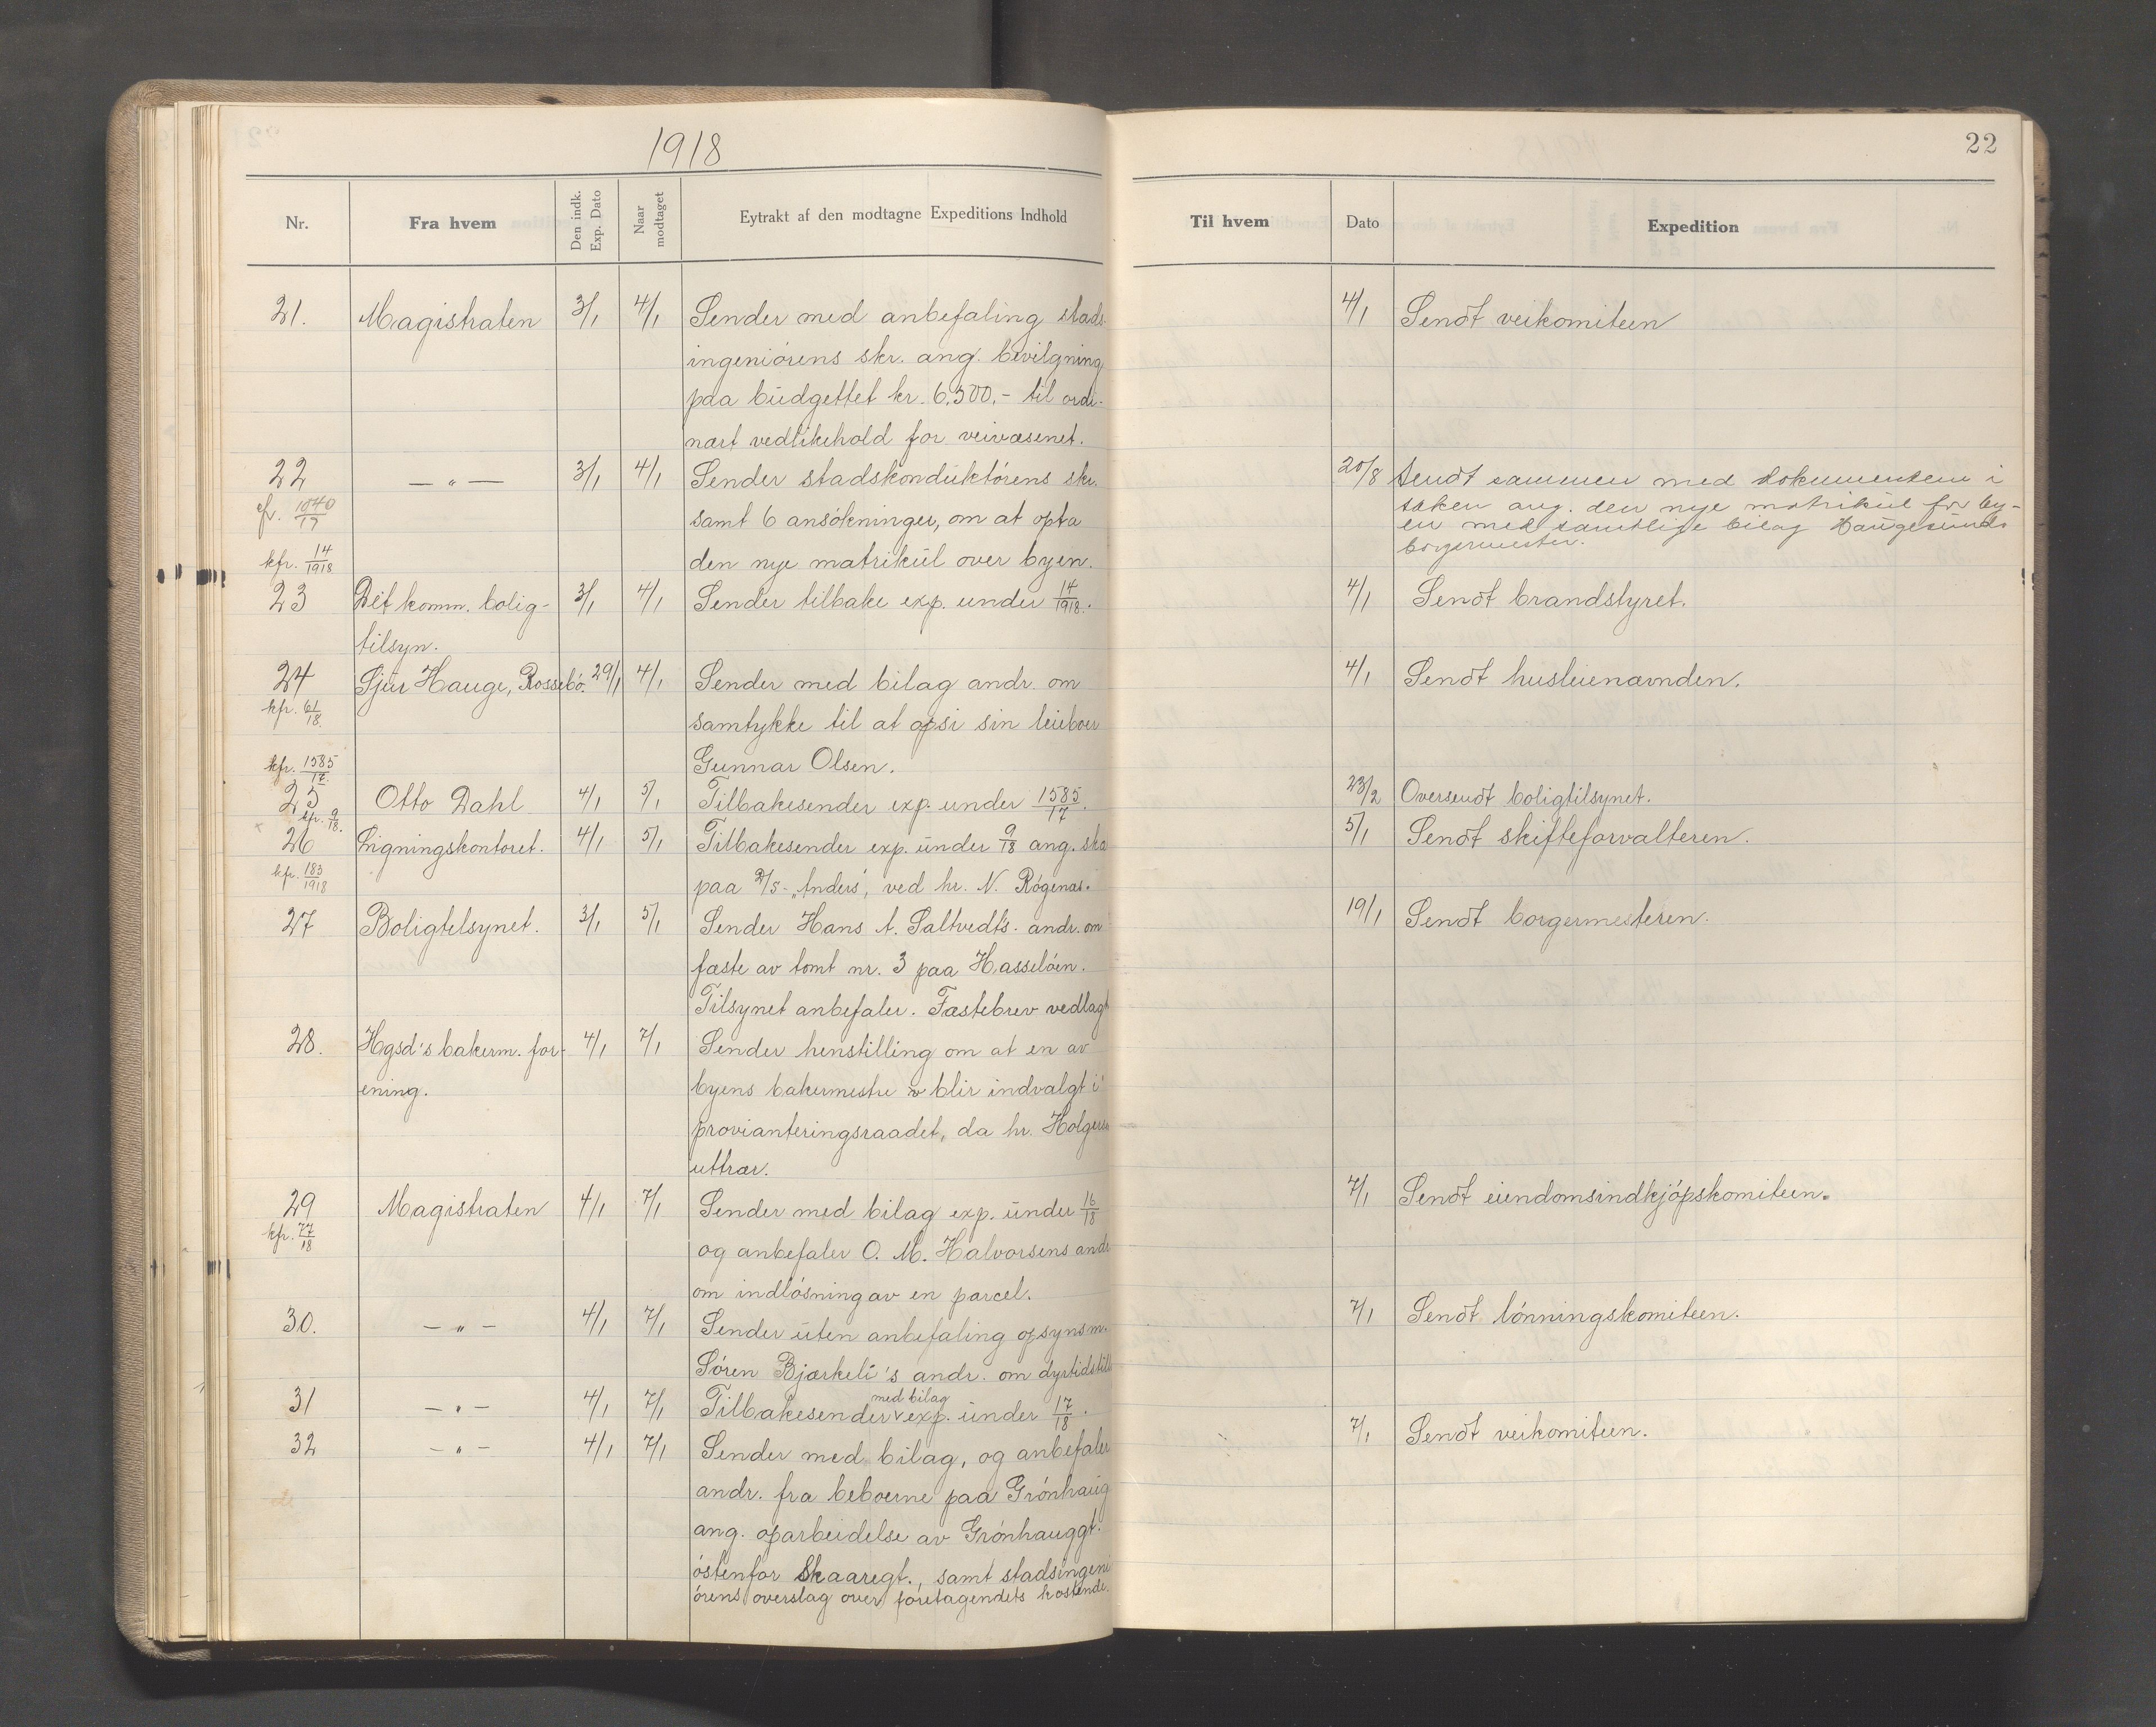 1918
22
Nr.
Fra hvem
Den indk. Exp. Dato
Naar modtaget
Eytrakt af den modtagne Expeditions Indhold
Til hvem
Dato
Expedition
21. Magistraten 3/1 4/1 Sender med anbefaling stads- 4/1 Sendt veikomiteen
ingeniörens skr. ang. bevilgning
paa budgettet kr. 6.500.- til ordi-
nært vedlikehold for veivæsenet.
22 — " — 3/1 4/1 Sender stadskonduktörens skr. 20/8 Sendt sammen med dokumentene i
cfr. 1040/17 samt 6 ansökninger, om at opta saken ang. den nye matrikul for by-
en med samtlige bilag Haugesunds
kfr. 14/1918 den nye matrikul over byen. borgermester.
23 Det komm. bolig- 3/1 4/1 Sender tilbake exp. under 14/1918. 4/1 Sendt brandstyret.
tilsyn.
24 Sjur Hauge, Rossebö. 29/1 4/1 Sender med bilag andr. om 4/1 Sendt husleienævnden.
kfr. 61/18. samtykke til at opsi sin leieboer
Gunnar Olsen.
kfr. 1585/17.
25 Otto Dahl 4/1 5/1 Tilbakesender exp. under 1585/17. 23/2 Oversendt boligtilsynet.
kfr. 9/18.
26 Ligningskontoret. 4/1 5/1 Tilbakesender exp. under 9/18 ang. ska 5/1 Sendt skifteforvalteren.
kfr. 183/1918 paa "Anders", ved hr. N. Rögenæs.
27 Boligtilsynet. 3/1 5/1 Sender Hans A. Saltvedt's andr. om 19/1 Sendt borgermesteren.
fæste av tomt nr. 3 paa Hasselöen.
Tilsynet anbefaler. Fæstebrev vedlagt
28. Hgsd's bakerm. for- 4/1 7/1 Sender henstilling om at en av
ening. byens bakermestre blir indvalgt i
provianteringsraadet, da hr. Holgers
uttrær.
29 Magistraten 4/1 7/1 Sender med bilag exp. under 16/18 7/1 Sendt eiendomsindkjöpskomiteen.
kfr. 77/18 og anbefaler O. M. Halvorsens andr
om indlösning av en parcel.
30. — " — 4/1 7/1 Sender uten anbefaling opsynsm. 7/1 Sendt lönningskomiteen.
Sören Bjærkeli's andr. om dyrtidstill
31 — " — 4/1 7/1 Tilbakesender med bilag exp. under 17/18.
32 — " — 4/1 7/1 Sender med bilag, og anbefaler 7/1 Sendt veikomiteen.
andr. fra beboerne paa Grönhaug
ang. oparbeidelse av Grönhauggt.
östenfor Skaaregt., samt stadsingeni
örens overslag over foretagendets kostende.